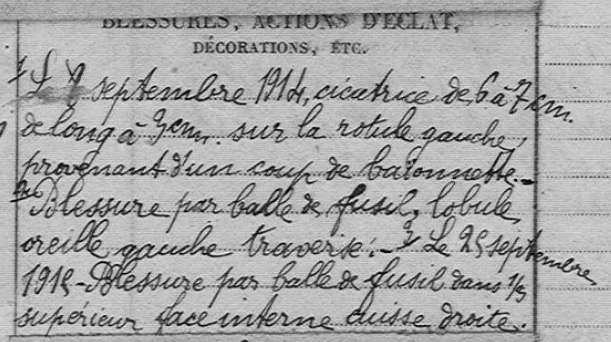 BLESSURES, ACTIONS D'ÉCLAT,
DÉCORATIONS, ETC.
1/ Le septembre 1914, cicatrice de 6 à 7 cm.
de long à 3 cm. sur la rotule gauche,
provenant d'un coup de baïonnette. -
2/ Blessure par balle de fusil, lobule
oreille gauche traversé. - 3/ Le 25 septembre
1915 - Blessure par balle de fusil dans 1/3
supérieur face interne cuisse droite.